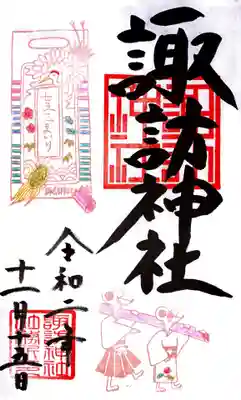 諏訪神社
七五三まいり
令和二年
十一月十五日